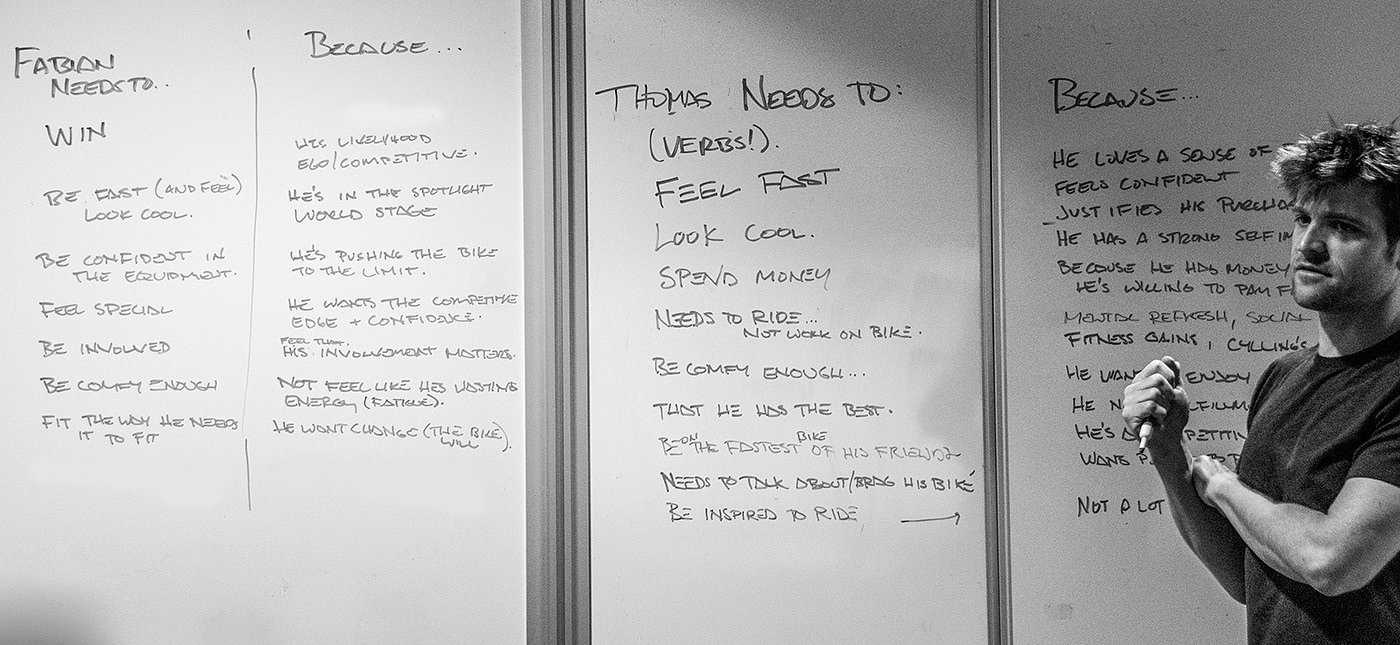 FABIAN
NEEDS TO..
WIN
BE FAST (AND FEEL)
LOOK COOL.
BE CONFIDENT IN
THE EQUIPMENT.
FEEL SPECIAL
BE INVOLVED
BE COMFY ENOUGH
FIT THE WAY HE NEEDS
IT TO FIT
BECAUSE...
HIS LIVELYHOOD
EGO/COMPETITIVE.
HE'S IN THE SPOTLIGHT
WORLD STAGE
HE'S PUSHING THE BIKE
TO THE LIMIT.
HE WANTS THE COMPETITIVE
EDGE + CONFIDENCE.
FEEL THAT
HIS INVOLVEMENT MATTERS.
NOT FEEL LIKE HES WASTING
ENERGY (FATIGUE).
HE WONT CHANGE (THE BIKE)
WILL
THOMAS NEEDS TO:
(VERBS!).
FEEL FAST
LOOK COOL.
SPEND MONEY
NEEDS TO RIDE...
NOT WORK ON BIKE.
BE COMFY ENOUGH...
THAT HE HAS THE BEST.
BE ON THE FASTEST BIKE OF HIS FRIENDS
NEEDS TO TALK ABOUT/BRAG HIS BIKE
BE INSPIRED TO RIDE
BECAUSE...
HE LOVES A SENSE OF
FEELS CONFIDENT
JUSTIFIES HIS
HE HAS A STRONG SELF
BECAUSE HE HAS MONEY
HE'S WILLING TO PAY
MENTAL REFRESH, SOCIAL
FITNESS GAINS,
HE ENJOY
HE
HE'S
NOT A LOT